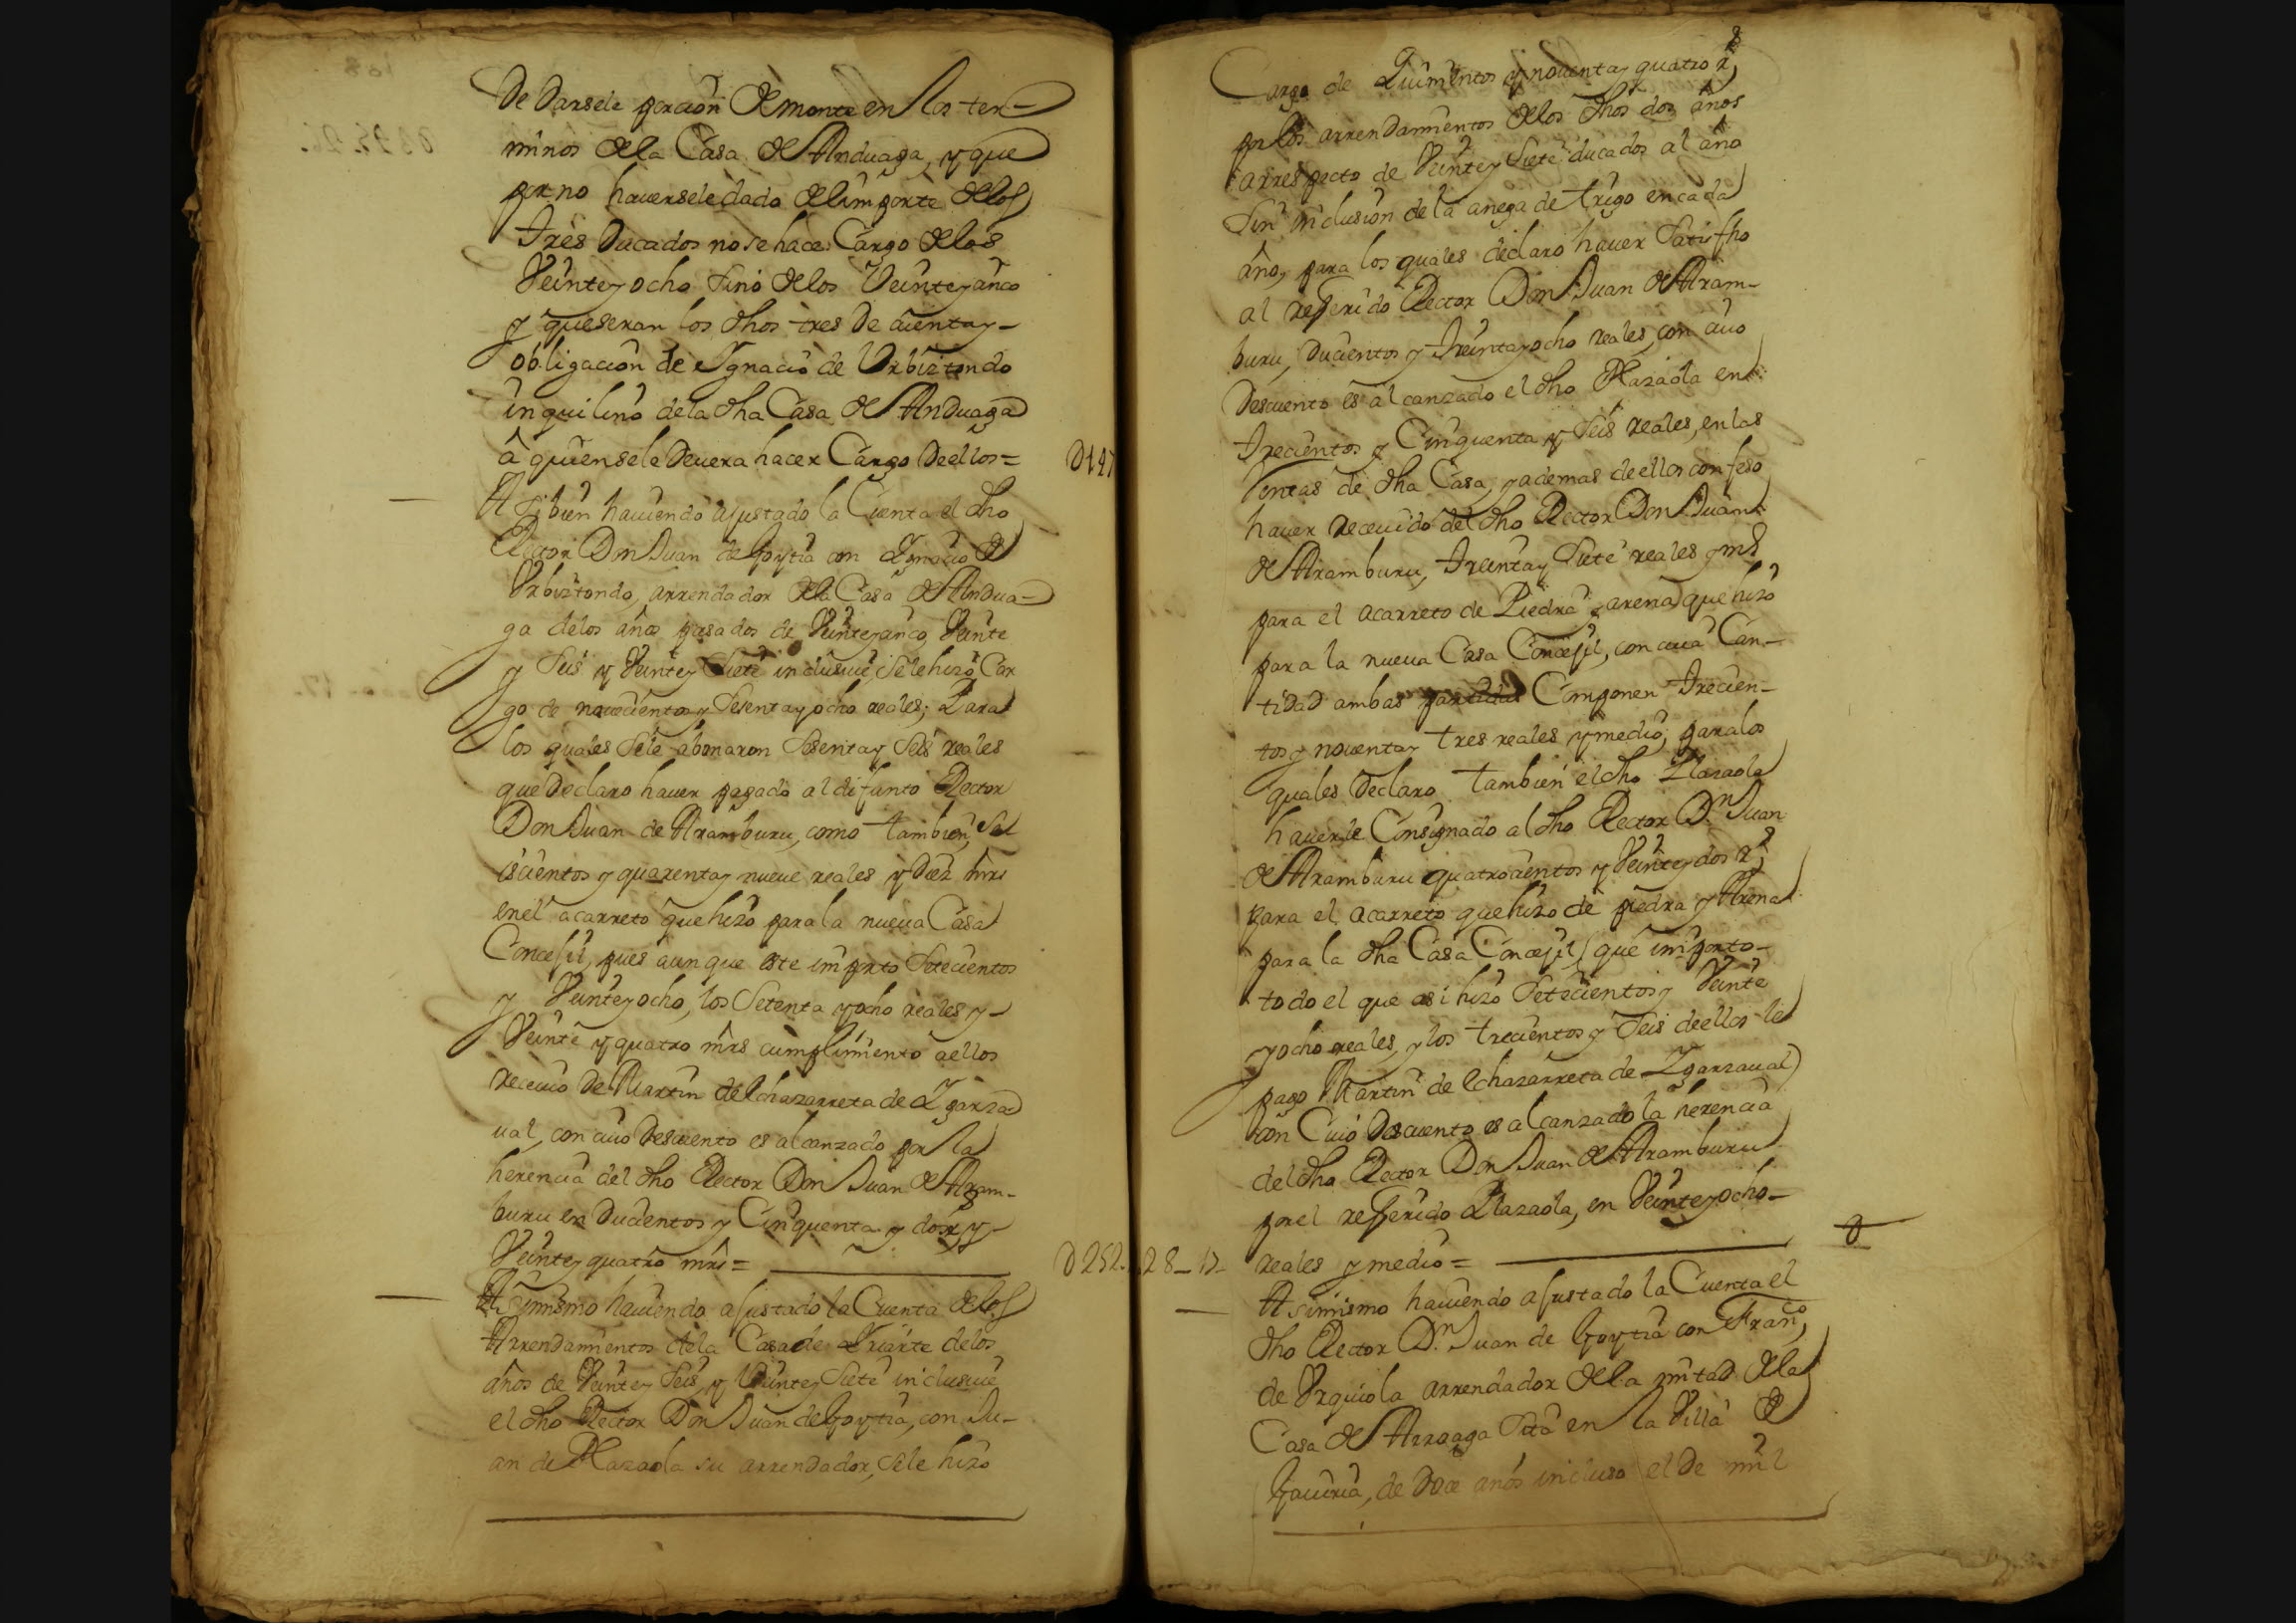 De Darsele porcion de monte en los ter-
minos de la Casa de Anduaga, y que
por no haversele dado el importe de los
Tres Ducados no se hace Cargo de los
Veinte y ocho sino de los Veinte y cinco
y que seran los dhos tres de cuenta y-
obligacion de Ygnacio de Urbiztondo
inquilino de la dha Casa de Anduaga
â quien se le Devera hacer Cargo de ellos=
Asi bien haviendo ajustado la Cuenta el dho
Rector Don Juan de Goytia con Ygnacio de
Urbiztondo, arrendador de la Casa de Andua-
ga de los años pasados de Veinte y cinco, Veinte
y Seis y Veinte y Siete inclusive, Se le hizo Car
go de novecientos y Sesenta y ocho reales; Para
los quales Se le abonaron Sesenta y Seis reales
que Declaro haver pagado al difunto Rector
Don Juan de Aramburu, como tambien, Se
iscientos y quarenta y nueve reales y Diez mrs
en el acarreto que hizo para la nueva Casa
Concejil, pues aunque este importo Setecientos
y Veinte y ocho, los Setenta y ocho reales y-
Veinte y quatro mrs cumplimiento a ellos
recevio de Martin de Echazarreta de Ygarza
ual, con cuio Descuento es alcanzado por la
herencia del dho Rector Don Juan de Aram-
buru en Ducientos y Cinquenta y dos rs y-
Veinte y quatro mrs=
Asimismo haviendo ajustado la Cuenta de los
Arrendamientos de la Casa de Yriarte de los
años de Veinte y Seis, y Veinte y Siete inclusive
el dho Rector Don Juan de Goytia, con Ju-
an de Plazaola su arrendador, Se le hizo
D252.
Cargo de Quinientos y noventa y quatro rs
por los arrendamientos de los dhos dos años
arrespecto de Veinte y Siete ducados al año
Sin inclusion de la anega de trigo en cada
año, para los quales declaro haver Satisfho
al referido Rector Don Juan de Aram-
buru, Ducientos y Treinta y ocho reales, con cuio
Descuento es alcanzado el dho Plazaola en
Trecientos y Cinquenta y Seis reales, en las
rentas de dha Casa, y ademas de ellos confeso
haver recevido del dho Rector Don Juan
de Aramburu, Treinta y Siete reales y mo
para el acarreto de Piedra y arena que hizo
para la nueva Casa Concejil, con cuia Can-
tidad ambas partidas Componen Trecien-
tos y noventa y tres reales y medio; para los
quales Declaro tambien el dho Plazaola
haverle Consignado al dho Rector Dn. Juan
de Aramburu quatrocientos y Veinte y dos rs
para el acarreto que hizo de piedra y Arena
para la dha Casa Concejil (que importo-
todo el que asi hizo Setecientos y Veinte
y ocho reales, y los trecientos y Seis de ellos le
pago Martin de Echazarreta de Ygarzaual)
con Cuio Descuento es alcanzado la herencia
del dho Rector Don Juan de Aramburu
por el referido Plazaola, en Veinte y ocho-
28-17- reales y medio=
Asimismo haviendo ajustado la Cuenta el
dho Rector Dn. Juan de Goytia con Franco,
de Urquiola arrendador de la mitad de la
Casa de Arroaga Sita en la Villa de
Gaviria, de Doce años incluso el de mil